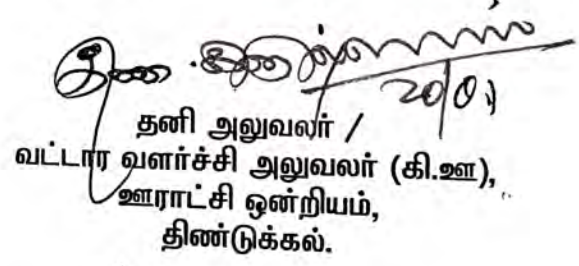 20/01
தனி அலுவலர் /
வட்டார வளர்ச்சி அலுவலர் (கி.ஊ),
ஊராட்சி ஒன்றியம்,
திண்டுக்கல்.